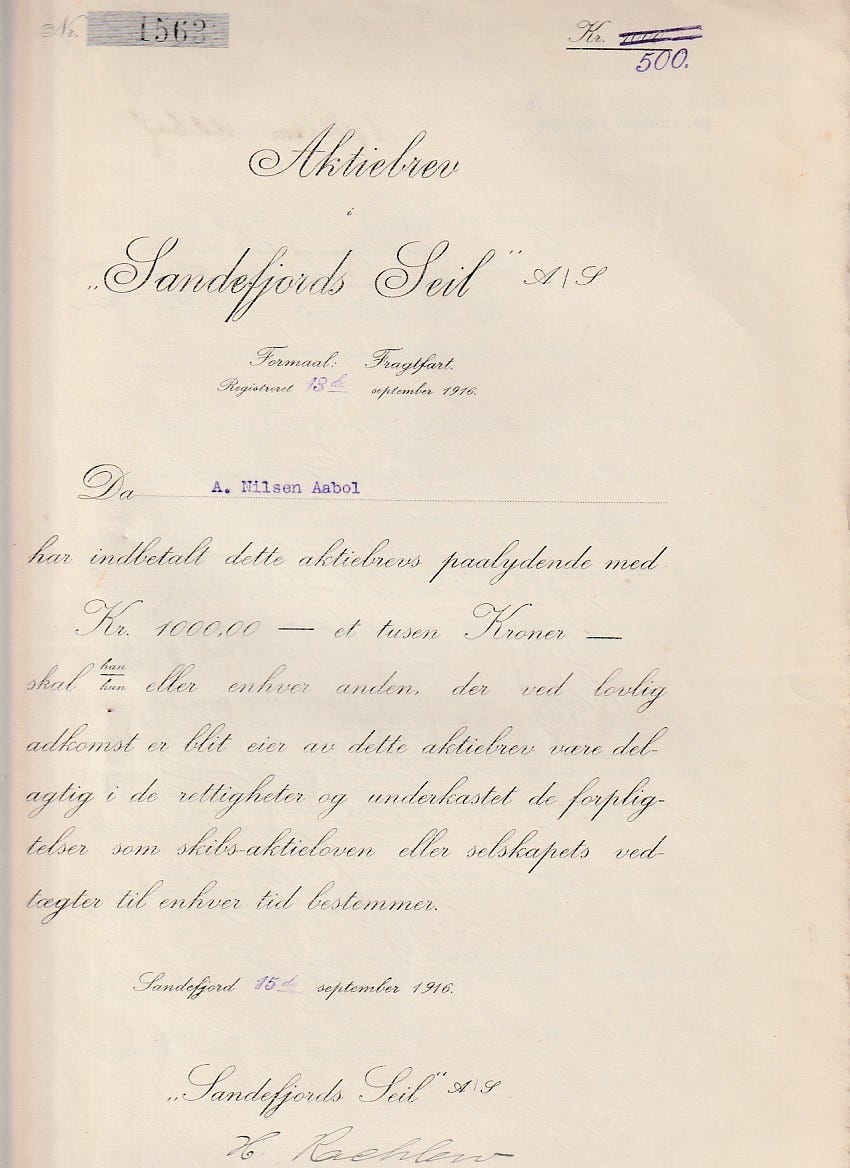 Nr. 1563
Kr. 1000
500.
Aktiebrev
i
„Sandefjords Seil" A/S
Formaal: Fragtfart.
Registreret 13de september 1916.
Da A. Nilsen Aabol
har indbetalt dette aktiebrevs paalydende med
Kr. 1000.00 — et tusen Kroner —
skal han/hun eller enhver anden, der ved lovlig
adkomst er blit eier av dette aktiebrev være del-
agtig i de rettigheter og underkastet de forplig-
telser som skibs-aktieloven eller selskapets ved-
tægter til enhver tid bestemmer.
Sandefjord 15de september 1916.
„Sandefjords Seil" A/S